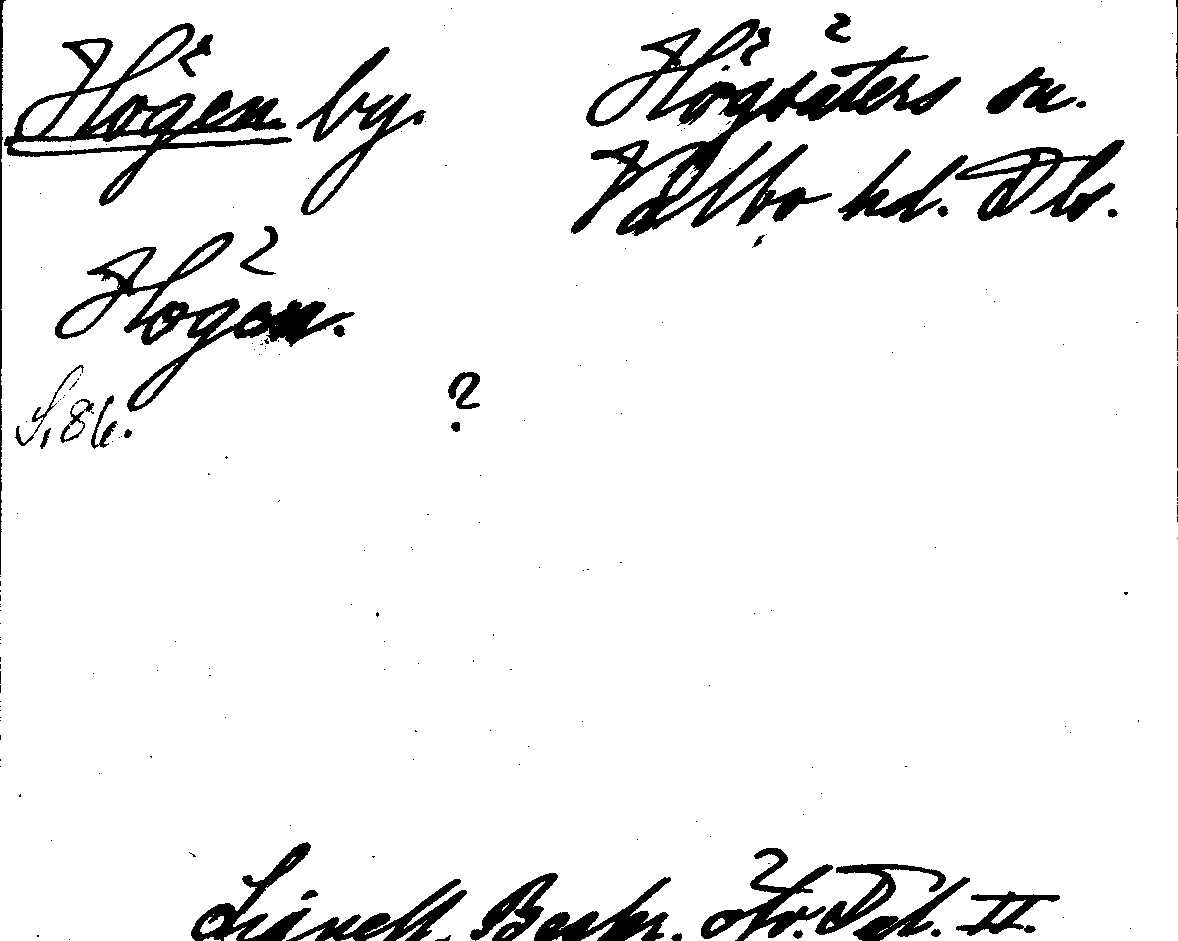 Högen by. Högsäters sn.
Valbo hd. Dls.
Högen.
S. 86. ?
Lignell, Beskr. öv. Dal. II.